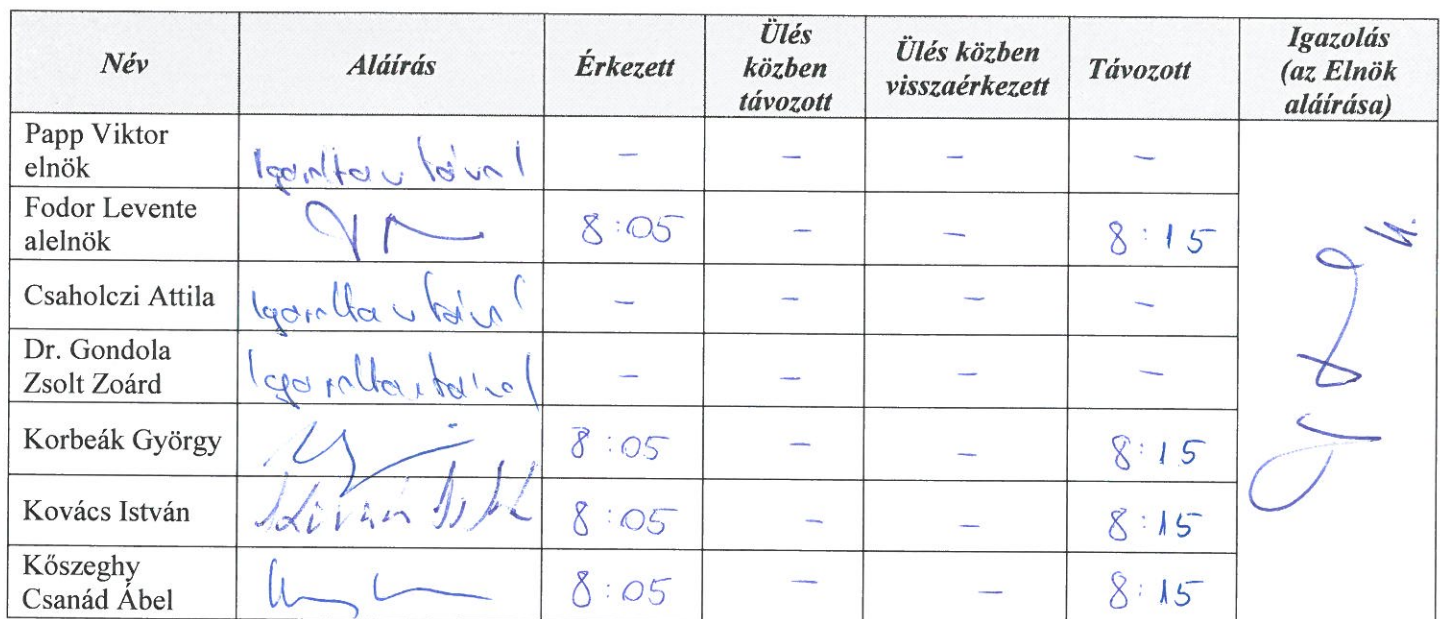 Név Aláírás Érkezett Ülés közben távozott Ülés közben visszaérkezett Távozott Igazolás (az Elnök aláírása)
Papp Viktor elnök Igazoltan távol – – – –
Fodor Levente alelnök 8:05 – – 8:15
Csaholczi Attila Igazoltan távol – – – –
Dr. Gondola Zsolt Zoárd Igazoltan távol – – – –
Korbeák György 8:05 – – 8:15
Kovács István 8:05 – – 8:15
Kőszeghy Csanád Ábel 8:05 – – 8:15